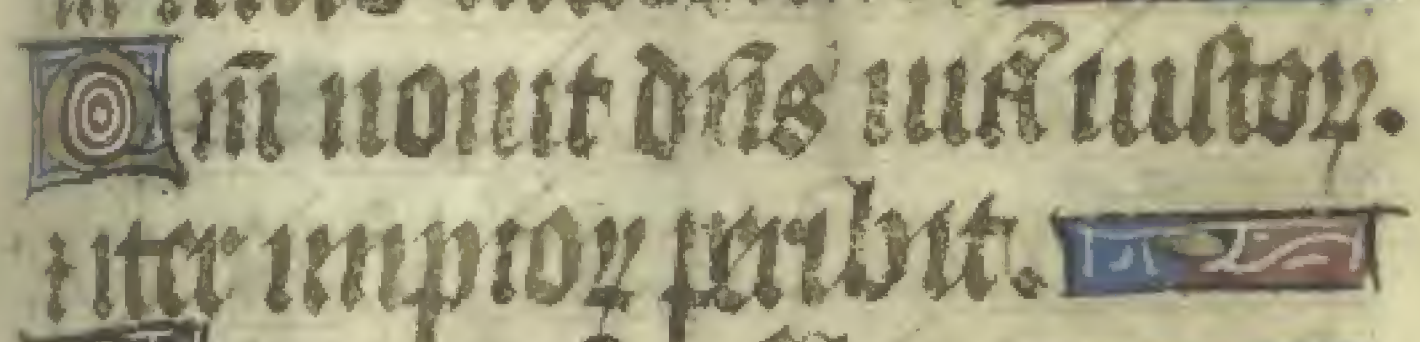 Qm̄ nouit dn̄s uiā iustoꝝ.
⁊ iter impioꝝ peribit.